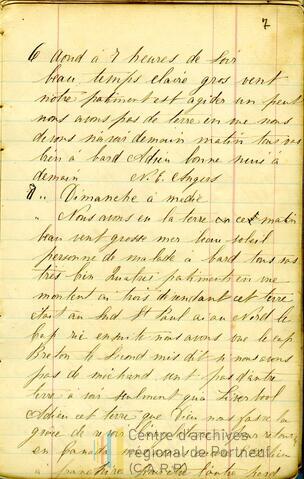 7
6 Aoud à 7 heures de soir
beau temps claire gros vent
notre patiment est agiter un peut
nous avons pas de terre en vue nous
devons
demain matin tous va
bien à bard Adieu bonne nuis à
demain N. E. Angers
8 " Dimanche à
" Nous avons eu la terre cet matin
beau vent grosse mer beau soleil
personne de malade à bard tous va
très bien quatre patiments en vue
montent ou trois dessendant cet terre
soit au sud St Paul au Nord le
cap ensuite nous avons vue le cap
Breton le second mis dit si nous avons
pas de méchand vent pas d'autre
terre a voir seulement qua Liverpool
Adieu cet terre que Dieu nous fasse la
grace de
en
Centre d'archives
régional de Portneuf
(C.A.R.P.)